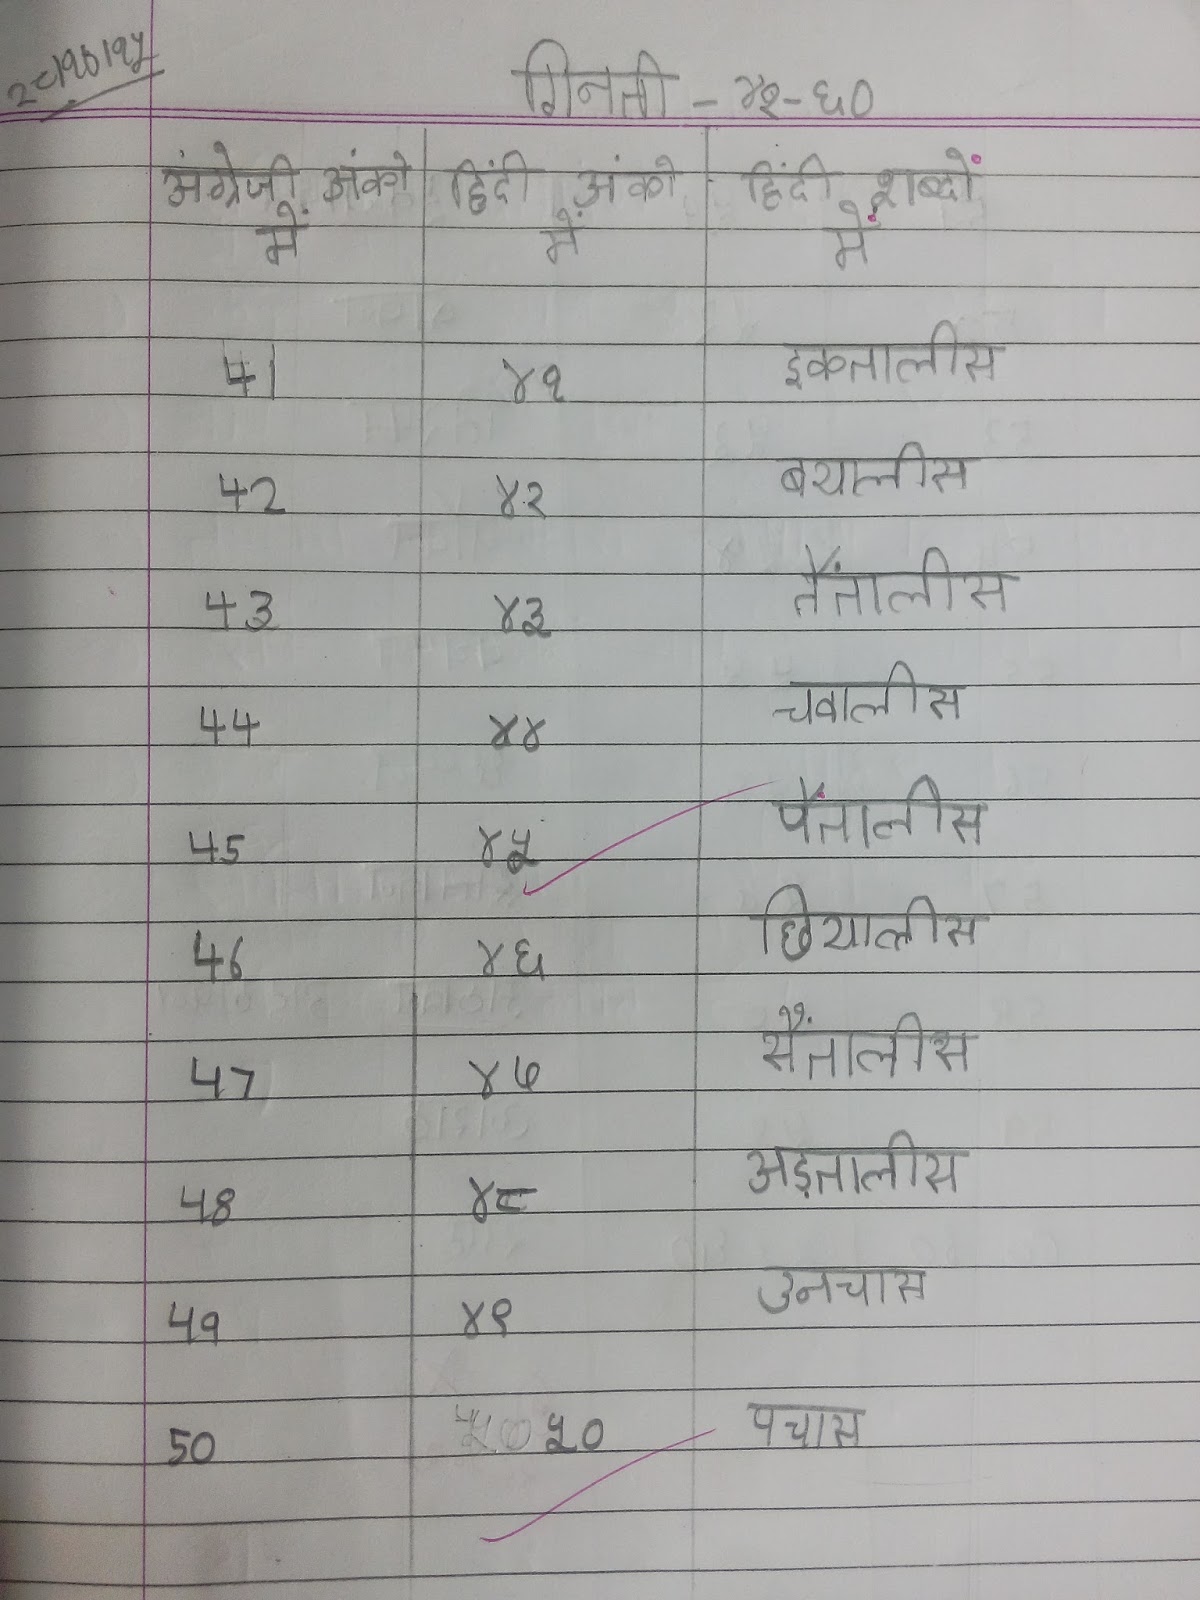 २८।१०।१५
गिनती - ४१-६०
अंग्रेजी अंको में हिंदी अंको में हिंदी शब्दों में
41 ४१ इकतालीस
42 ४२ बयालीस
43 ४३ तैंतालीस
44 ४४ चवालीस
45 ४५ पैंतालीस
46 ४६ छियालीस
47 ४७ सैंतालीस
48 ४८ अड़तालीस
49 ४९ उनचास
50 ५० पचास